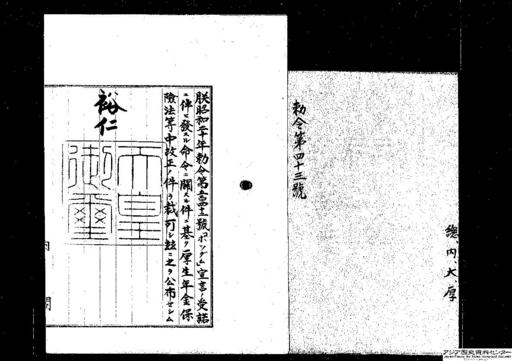 勅令第四十三號
總、内、大、厚
朕昭和二十年勅令第五百四十二號「ポツダム」宣言ノ受諾
ニ伴ヒ發スル命令ニ關スル件ニ基ク厚生年金保
險法等中改正ノ件ヲ裁可シ玆ニ之ヲ公布セシム
裕仁
天皇
御璽
内
閣
アジア歴史資料センター